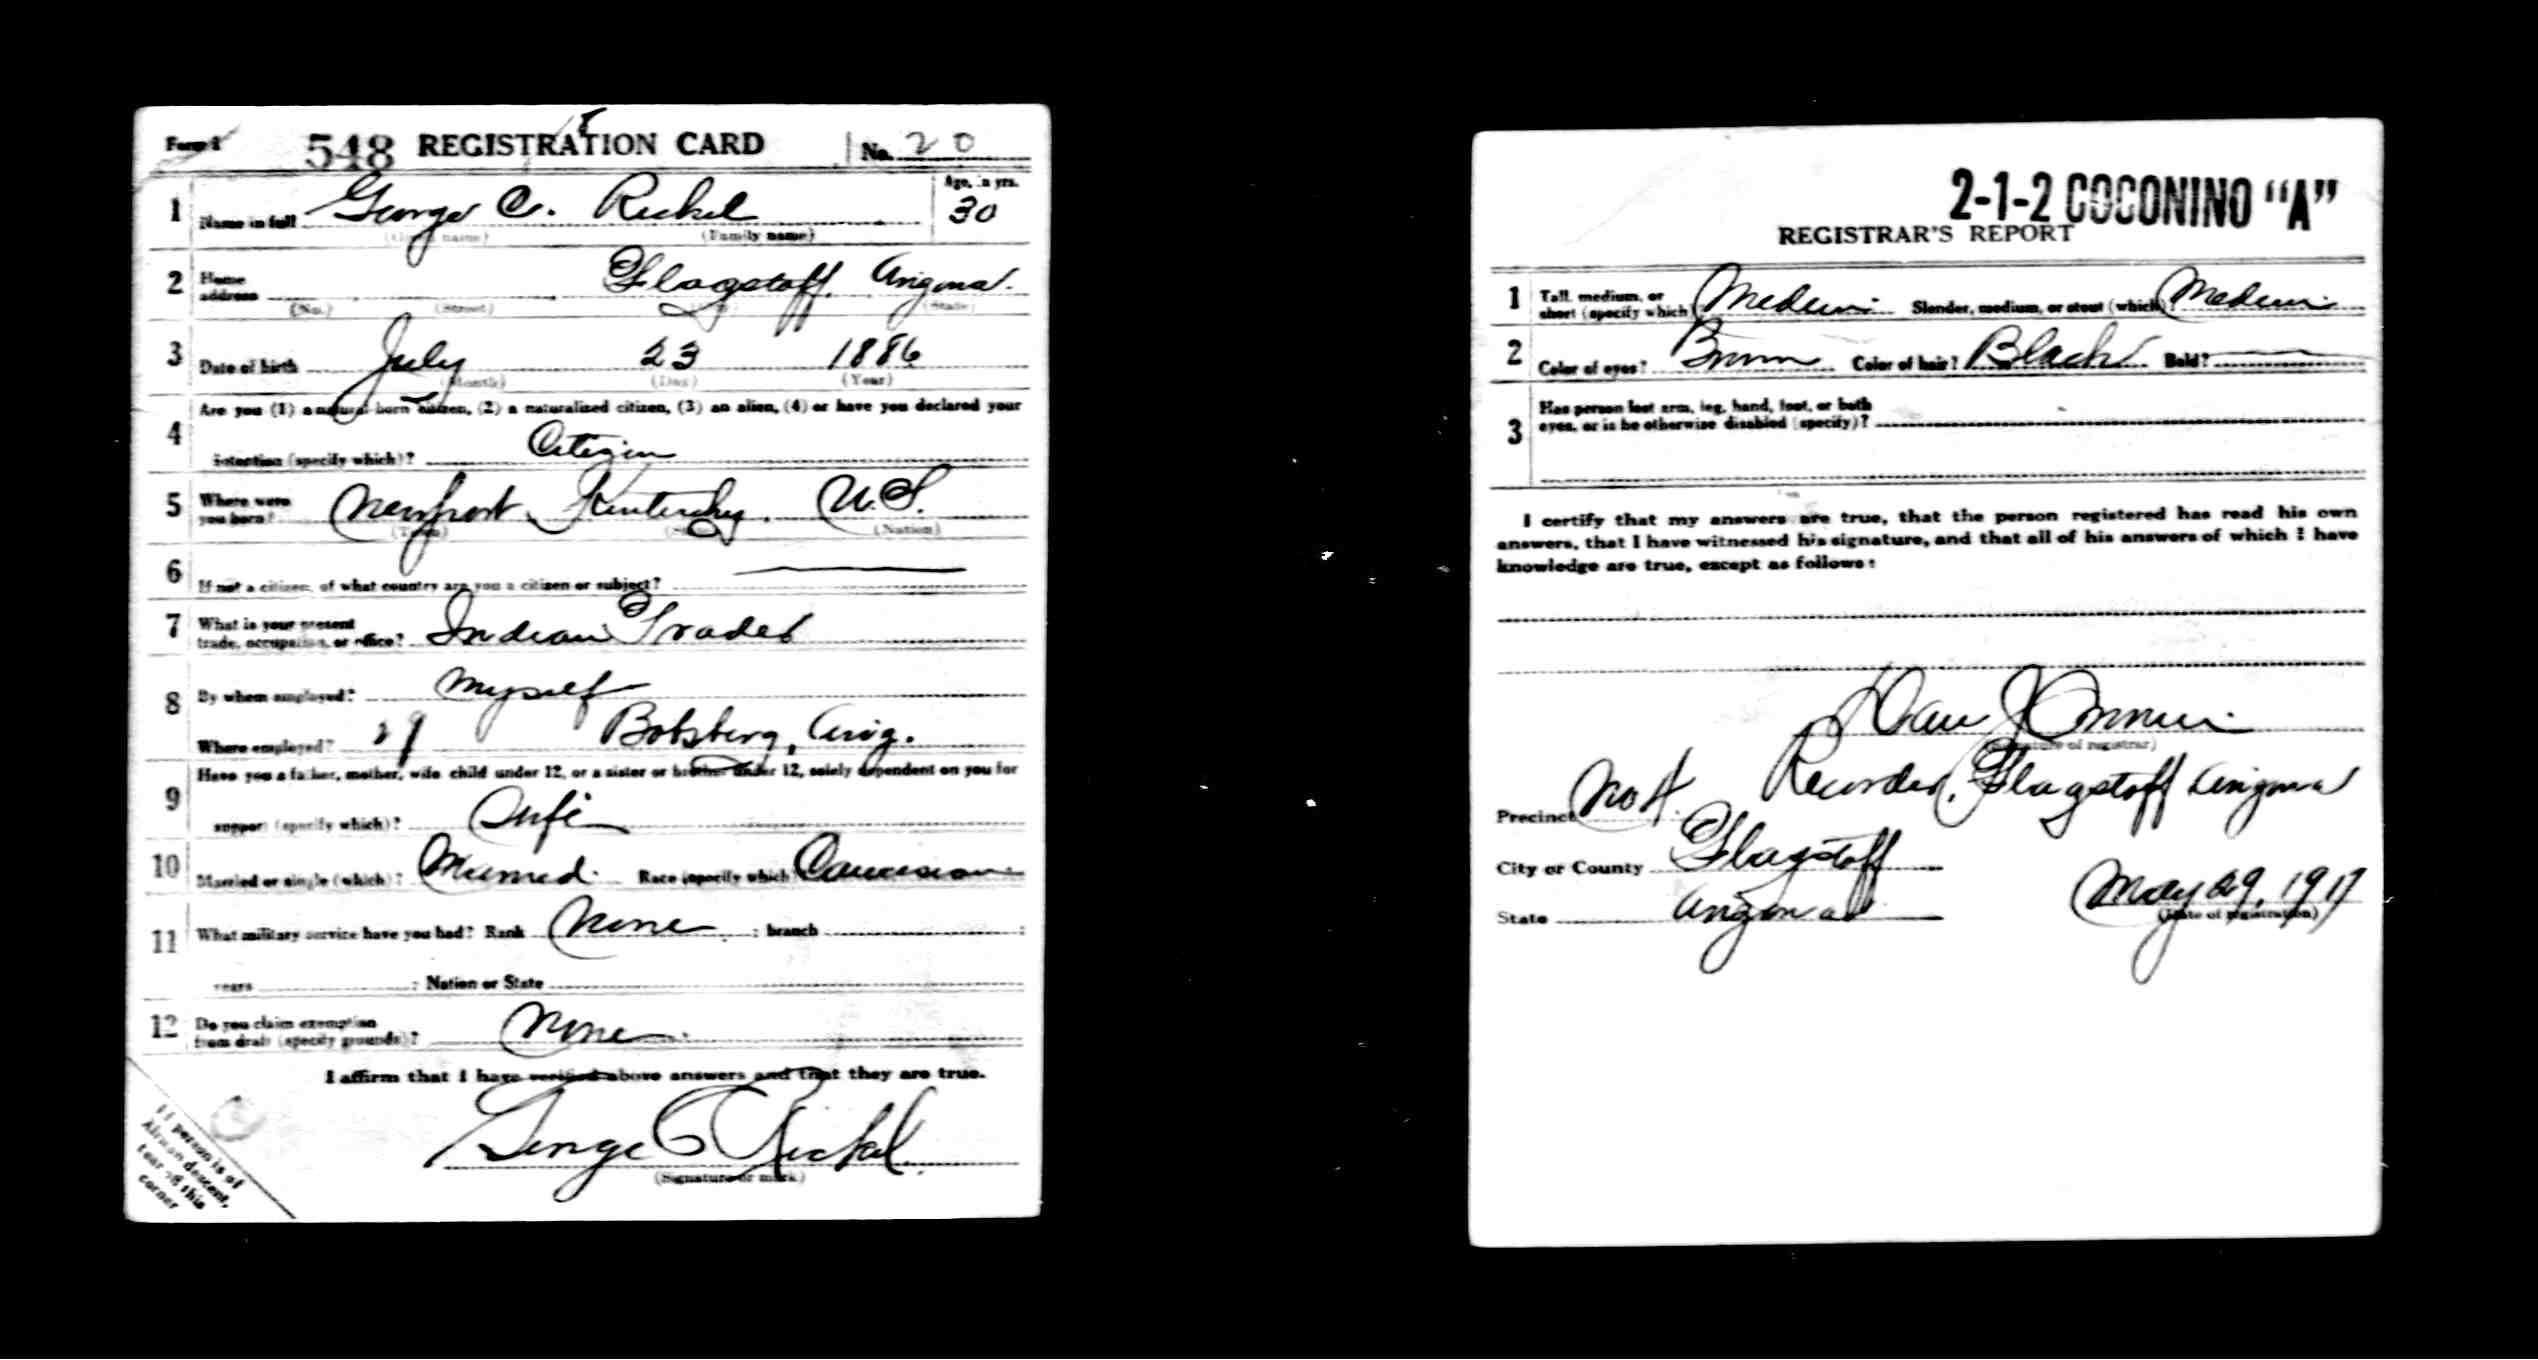 Form 1 548 REGISTRATION CARD No. 20
1 Name in full George C. Rickel Age, in yrs. 30
(Given name) (Family name)
2 Home address Flagstaff Arizona.
(No.) (Street) (City) (State)
3 Date of birth July 23 1886
(Month) (Day) (Year)
Are you (1) a natural-born citizen, (2) a naturalized citizen, (3) an alien, (4) or have you declared your
4 intention (specify which)? Citizen
5 Where were you born? Newport Kentucky. U.S.
(Town) (State) (Nation)
6 If not a citizen, of what country are you a citizen or subject?
7 What is your present trade, occupation, or office? Indian Trader
8 By whom employed? Myself
Where employed? 29 Ariz.
Have you a father, mother, wife child under 12, or a sister or brother under 12, solely dependent on you for
9 support (specify which)? Wife
10 Married or single (which)? Married. Race (specify which) Caucasian
11 What military service have you had? Rank None ; branch ;
years ; Nation or State
12 Do you claim exemption from draft (specify grounds)? None
I affirm that I have verified above answers and that they are true.
George C Rickel
(Signature or mark)
If person is of
African descent,
tear off this
corner
2-1-2 COCONINO "A"
REGISTRAR'S REPORT
1 Tall, medium, or short (specify which) Medium Slender, medium, or stout (which)? Medium
2 Color of eyes? Brown Color of hair? Black Bald?
3 Has person lost arm, leg, hand, foot, or both
eyes, or is he otherwise disabled (specify)?
I certify that my answers are true, that the person registered has read his own
answers, that I have witnessed his signature, and that all of his answers of which I have
knowledge are true, except as follows:
(Signature of registrar)
Recorder, Flagstaff Arizona
Precinct No 4.
City or County Flagstaff
State Arizona May 29, 1917
(Date of registration)